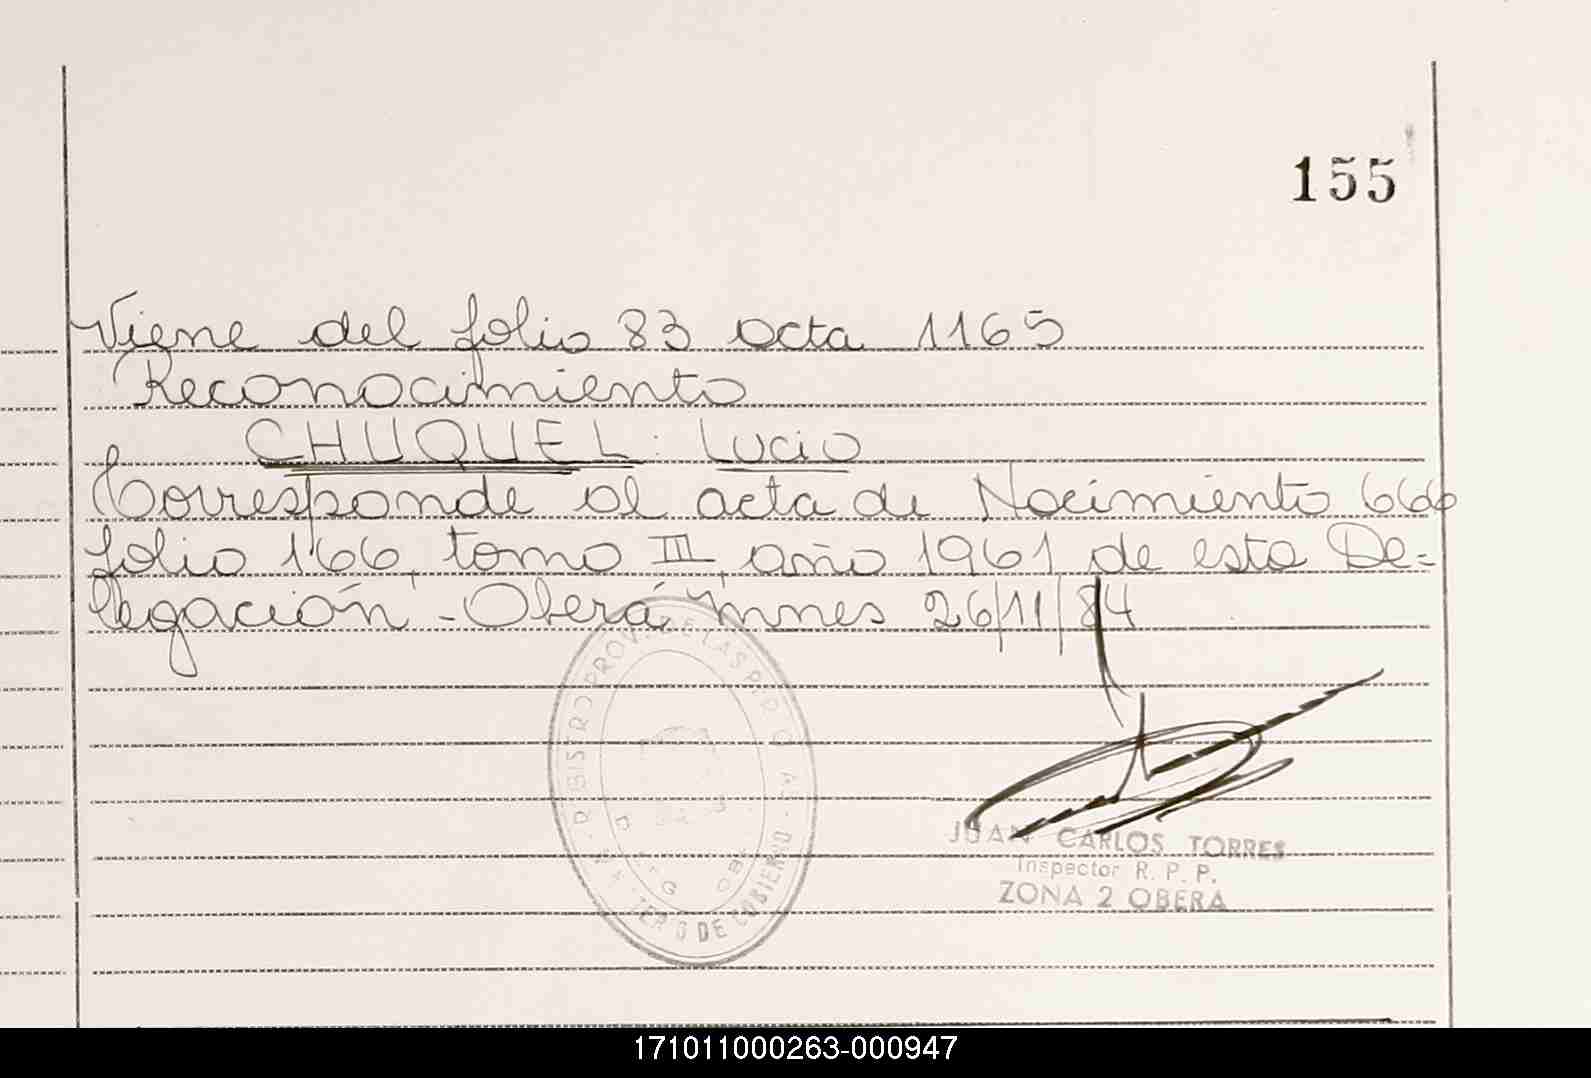 155
Viene del folio 83 acta 1165
Reconocimiento
CHUQUEL: Lucio
Corresponde al acta de Nacimiento 666
folio 166, tomo III, año 1961 de esta De=
legación - Oberá, Mnes 26/11/84
REGISTRO PROV. DE LAS PERSONAS
MINISTERIO DE GOBIERNO
JUAN CARLOS TORRES
Inspector R. P. P.
ZONA 2 OBERA
171011000263-000947